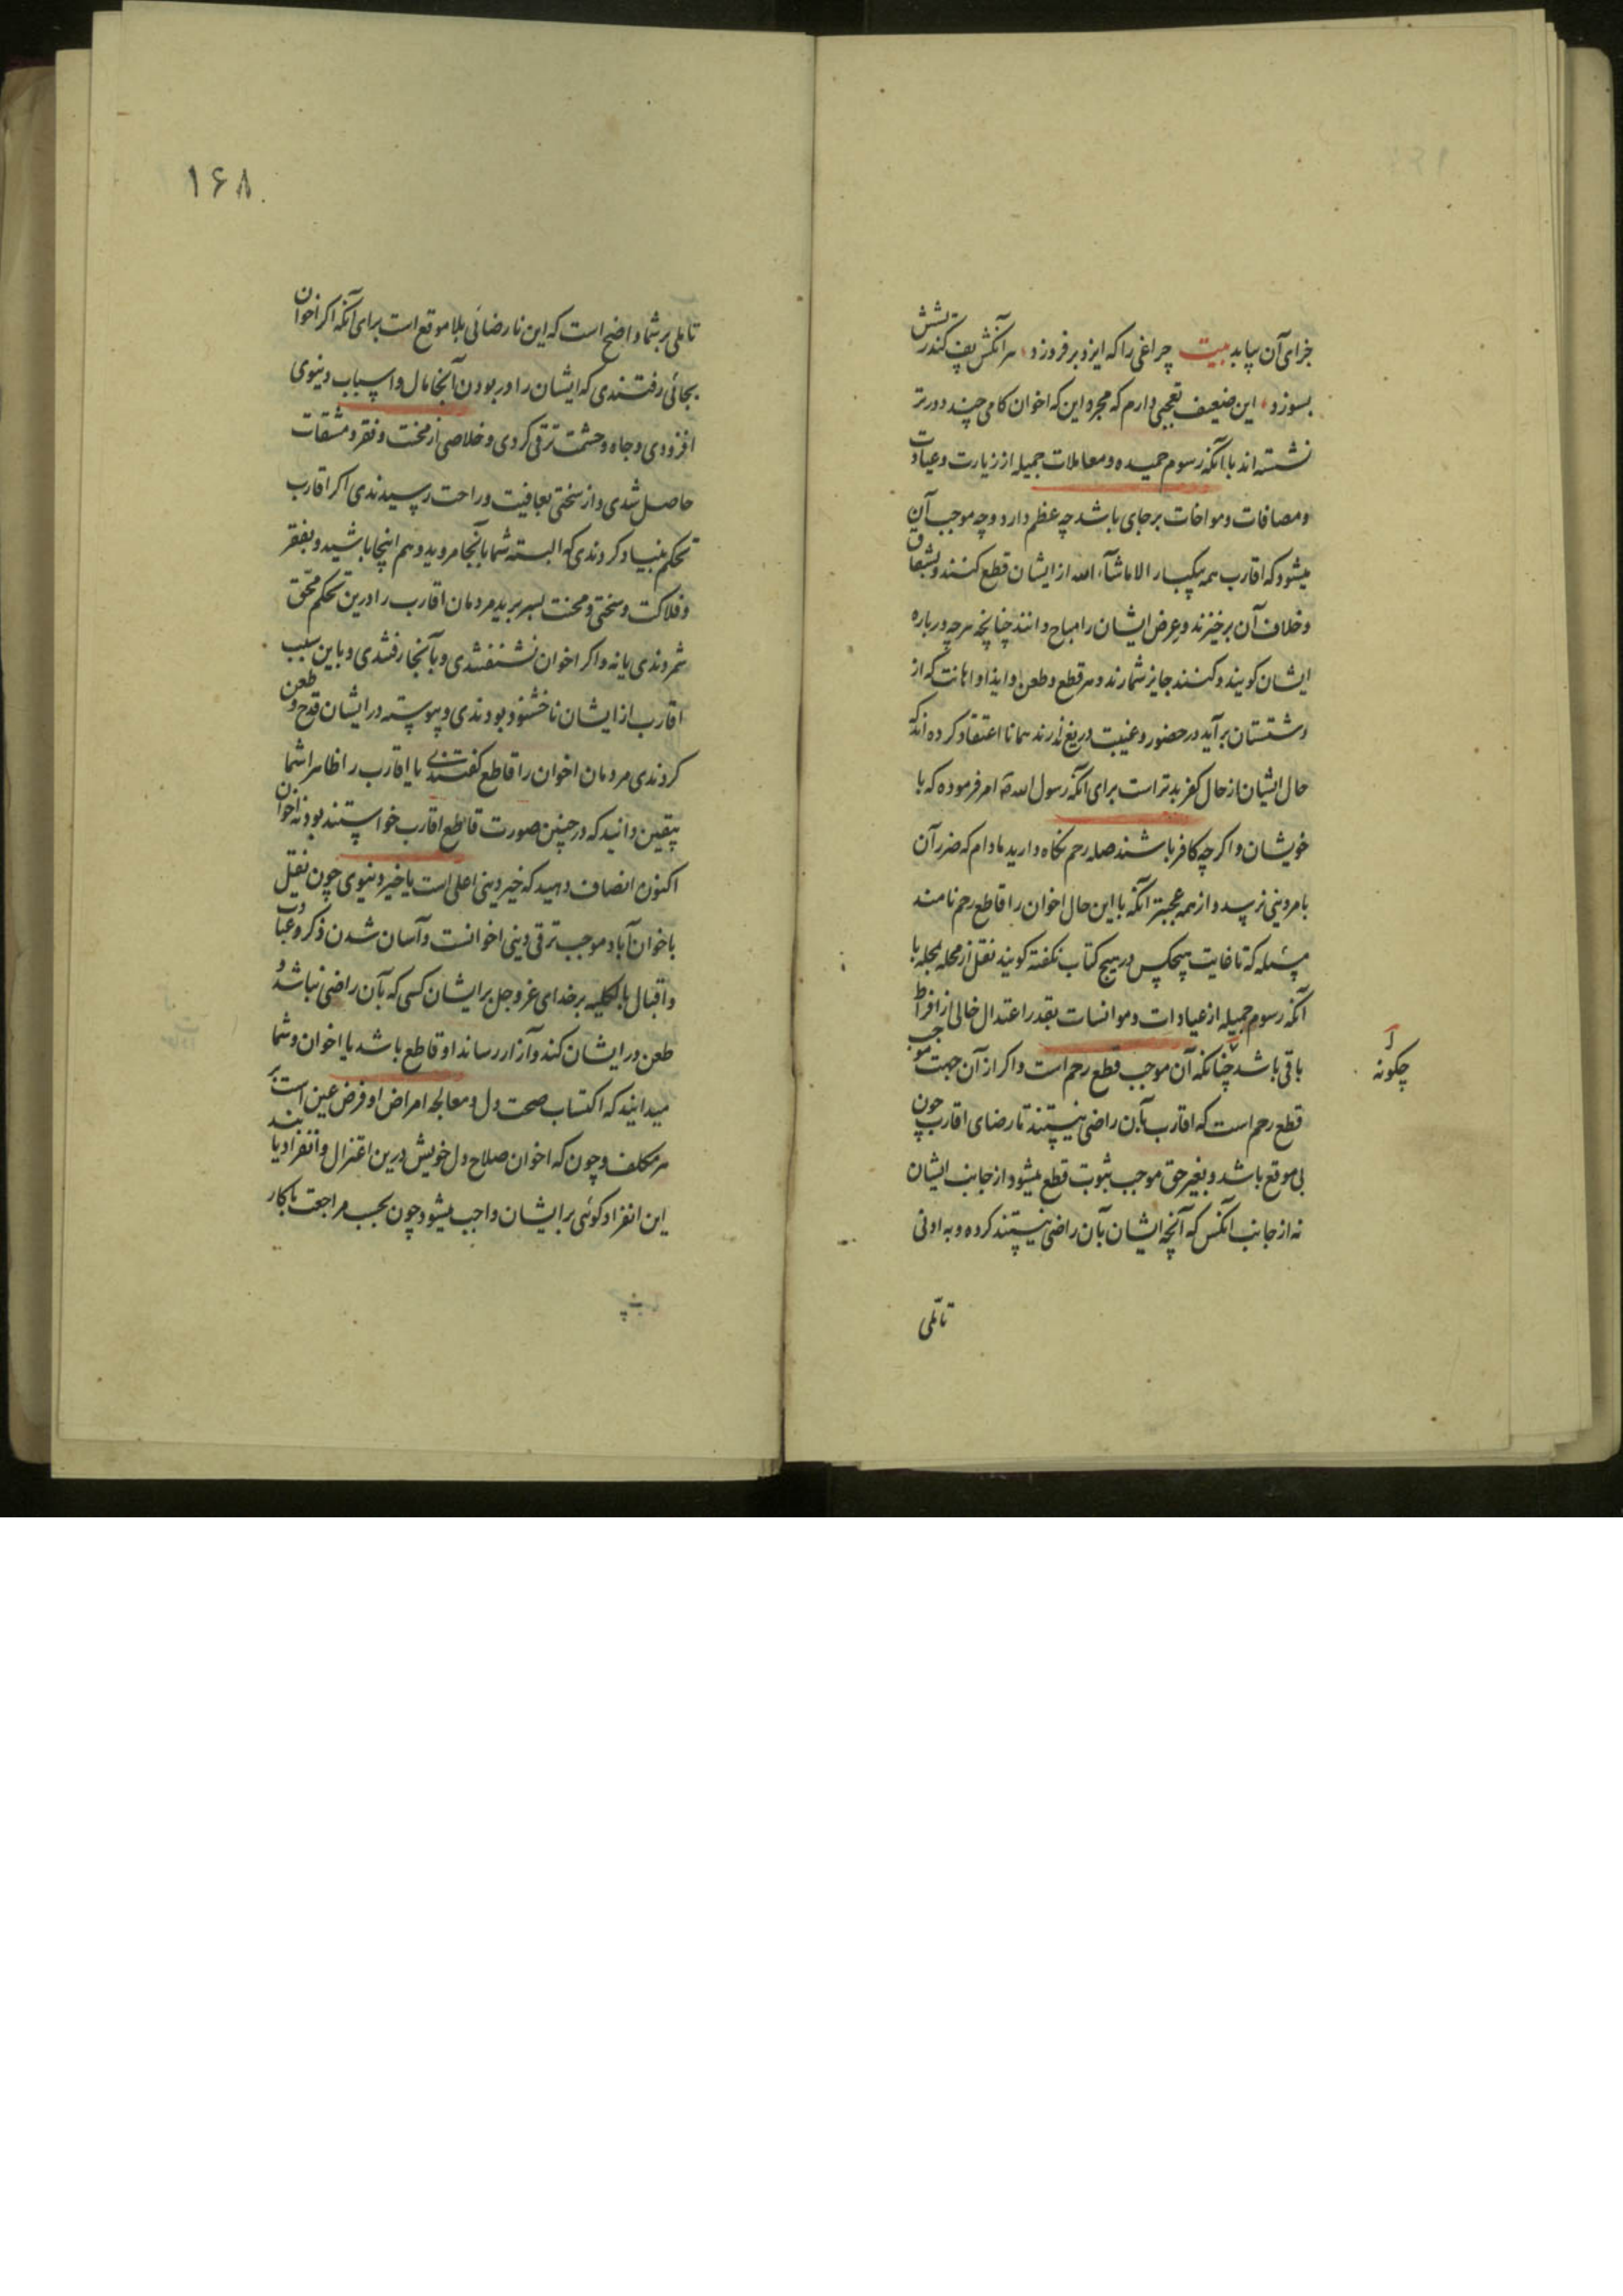 جزای آن بیابد بیت چراغی را که ایزد برفروزد هر آنکش پف کند ریشش
بسوزد این ضعیف تعجبی دارم که مجرد این که اخوان کامی چند دورتر
نشسته اند با آنکه رسوم حمیده و معاملات جمیله از زیارت و عیادت
و مصافات و مواخات برجای باشد چه عظم دارد و چه موجب آن
میشود که اقارب همه بیکبار الا ماشآء الله از ایشان قطع کنند و بشقاق
و خلاف آن برخیزند و عرض ایشان را مباح دانند چنانچه هر چه درباره
ایشان کویند و کنند جایز شمارند و هر قطع و طعن و ایذا و اهانت که از
دستشان برآید در حضور و غیبت دریغ ندارند همانا اعتقاد کرده اند که
حال ایشان از حال کفر بدتر است برای آنکه رسول الله امر فرموده که با
خویشان و اکرچه کافر باشند صله رحم نکاه دارید مادام که ضرر آن
بامر دینی نرسد و از همه عجبتر آنکه با این حال اخوان را قاطع رحم نامند
مسئله که تا غایت هیچکس در هیچ کتاب نکفته کویند نقل از محله بمحله با
آنکه رسوم جمیله از عیادات و موانسات بقدر اعتدال خالی از افراط
باقی باشد چنانکه آن موجب قطع رحم است و اکر از آن جهت موجب
چکونه
قطع رحم است که اقارب بآن راضی نیستند نا رضای اقارب چون
بی موقع باشد و بغیر حق موجب ثبوت قطع میشود از جانب ایشان
نه از جانب آنکس که آنچه ایشان بآن راضی نیستند کرده و به ادنی
تاملی
۱۶۸
تاملی بر شما واضح است که این نارضائی بلا موقع است برای آنکه اکر اخوان
بجائی رفتندی که ایشان را در بودن آنجا مال و اسباب دنیوی
افزودی و جاه و حشمت ترقی کردی و خلاصی از محنت و فقر و مشقات
حاصل شدی و از سختی بعافیت و راحت رسیدندی اکر اقارب
تحکم بنیاد کردندی که البته شما بآنجا مروید و هم اینجا باشید و بفقر
و فلاکت و سختی و محنت بسر برید مردمان اقارب را درین تحکم محق
شمردندی یا نه و اکر اخوان نشنفتندی و بآنجا رفتندی و باین سبب
اقارب از ایشان ناخشنود بودندی و پیوسته در ایشان قدح و طعن
کردندی مردمان اخوان را قاطع کفتندی یا اقارب را ظاهرا شما
بیقین دانید که در چنین صورت قاطع اقارب خواستند بود نه اخوان
اکنون انصاف دهید که خیر دینی اعلی است یا خیر دنیوی چون نقل
باخوان آباد موجب ترقی دینی اخوانست و آسان شدن ذکر و عبادت
و اقبال بالکلیه بر خدای عز و جل بر ایشان کسی که بآن راضی نباشد و
طعن در ایشان کند و آزار رساند او قاطع باشد یا اخوان و شما
میدانید که اکتساب صحت دل و معالجه امراض او فرض عین است بر
هر مکلف و چون که اخوان صلاح دل خویش درین اعتزال و انفراد یابند
این انفراد کوئی بر ایشان واجب میشود چون بحسب مراجعت بآکار